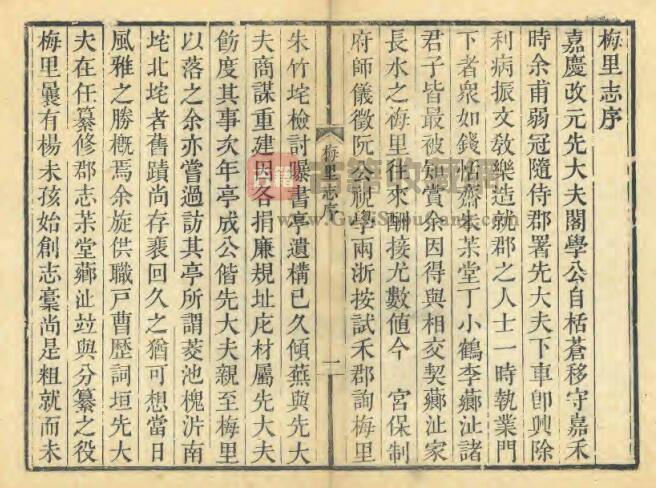 梅里志序
嘉慶改元先大夫閣學公自栝蒼移守嘉禾
時余甫弱冠隨侍郡署先大夫下車卽興除
利病振文敎樂造就郡之人士一時執業門
下者衆如錢恬齋朱茮堂丁小鶴李薌沚諸
君子皆最被知賞余因得與相交契薌沚家
長水之梅里往來酬接尤數値今 宮保制
府師儀徵阮公視學兩浙按試禾郡詢梅里
梅里志序
一
朱竹垞檢討曝書亭遺構已久傾蕪與先大
夫商謀重建因各捐廉規址庀材屬先大夫
飭度其事次年亭成公偕先大夫親至梅里
以落之余亦嘗過訪其亭所謂菱池槐沜南
垞北垞者舊蹟尚存裵回久之猶可想當日
風雅之勝槪焉余旋供職戸曹歷詞垣先大
夫在任纂修郡志茮堂薌沚竝與分纂之役
梅里曩有楊未孩始創志稾尚是粗就而未